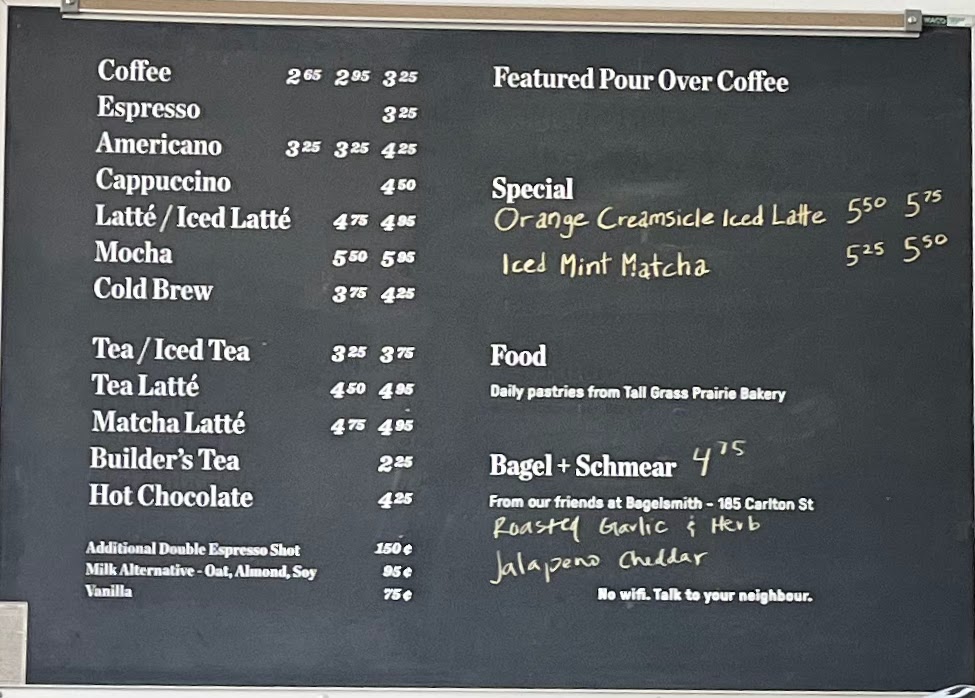 WACO
Coffee 2 65 2 95 3 25
Espresso 3 25
Americano 3 25 3 25 4 25
Cappuccino 4 50
Latté / Iced Latté 4 75 4 95
Mocha 5 50 5 95
Cold Brew 3 75 4 25
Tea / Iced Tea 3 25 3 75
Tea Latté 4 50 4 95
Matcha Latté 4 75 4 95
Builder's Tea 2 25
Hot Chocolate 4 25
Additional Double Espresso Shot 150¢
Milk Alternative - Oat, Almond, Soy 95¢
Vanilla 75¢
Featured Pour Over Coffee
Special
Orange Creamsicle Iced Latte 5 50 5 75
Iced Mint Matcha 5 25 5 50
Food
Daily pastries from Tall Grass Prairie Bakery
Bagel + Schmear 4 75
From our friends at Bagelsmith - 185 Carlton St
Roasted Garlic & Herb
Jalapeno Cheddar
No wifi. Talk to your neighbour.